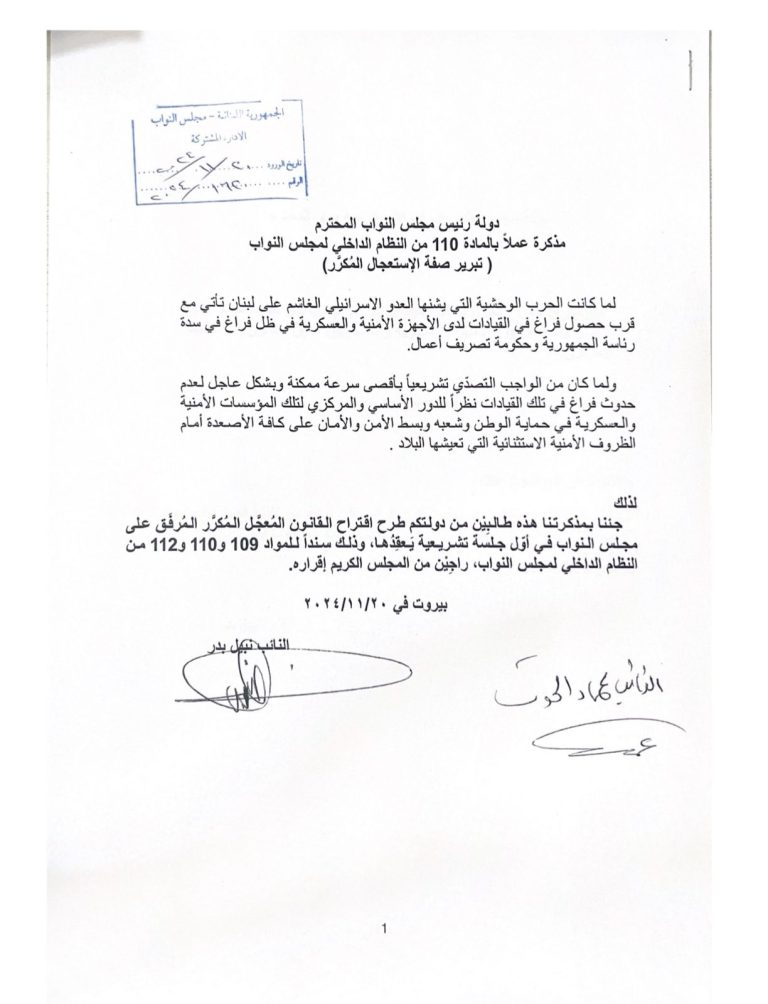 الجمهورية اللبنانية - مجلس النواب
الادارة المشتركة
تاريخ الورود ٢٠/١١/٢٠٢٤
الرقم ٢٠٢٤/
دولة رئيس مجلس النواب المحترم
مذكرة عملاً بالمادة 110 من النظام الداخلي لمجلس النواب
( تبرير صفة الإستعجال المُكرَّر)
لما كانت الحرب الوحشية التي يشنها العدو الاسرائيلي الغاشم على لبنان تأتي مع
قرب حصول فراغ في القيادات لدى الأجهزة الأمنية والعسكرية في ظل فراغ في سدة
رئاسة الجمهورية وحكومة تصريف أعمال.
ولما كان من الواجب التصدّي تشريعياً بأقصى سرعة ممكنة وبشكل عاجل لعدم
حدوث فراغ في تلك القيادات نظراً للدور الأساسي والمركزي لتلك المؤسسات الأمنية
والعسكرية في حماية الوطن وشعبه وبسط الأمن والأمان على كافة الأصعدة أمام
الظروف الأمنية الاستثنائية التي تعيشها البلاد .
لذلك
جئنا بمذكرتنا هذه طالبِيْن من دولتكم طرح اقتراح القانون المُعجَّل المُكرَّر المُرفَق على
مجلس النواب في أوّل جلسة تشريعية يَعقِدُها، وذلك سنداً للمواد 109 و110 و112 من
النظام الداخلي لمجلس النواب، راجِيْن من المجلس الكريم إقراره.
بيروت في ٢٠٢٤/١١/٢٠
النائب نبيل بدر
النائب عماد الحوت
1